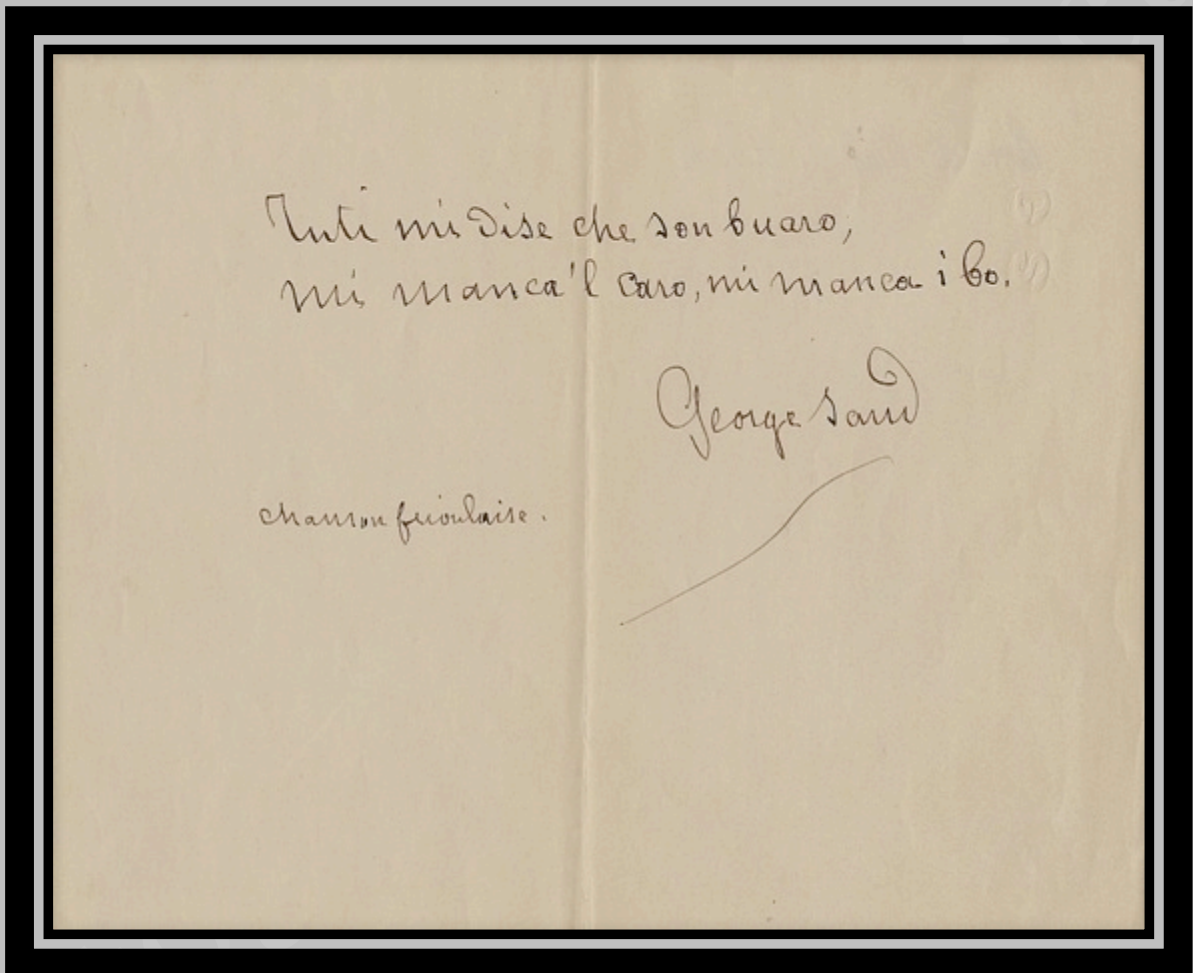 Tuti mi dise che son buaro,
mi manca'l caro, mi manca i bo.
George Sand
chanson frioulaise.